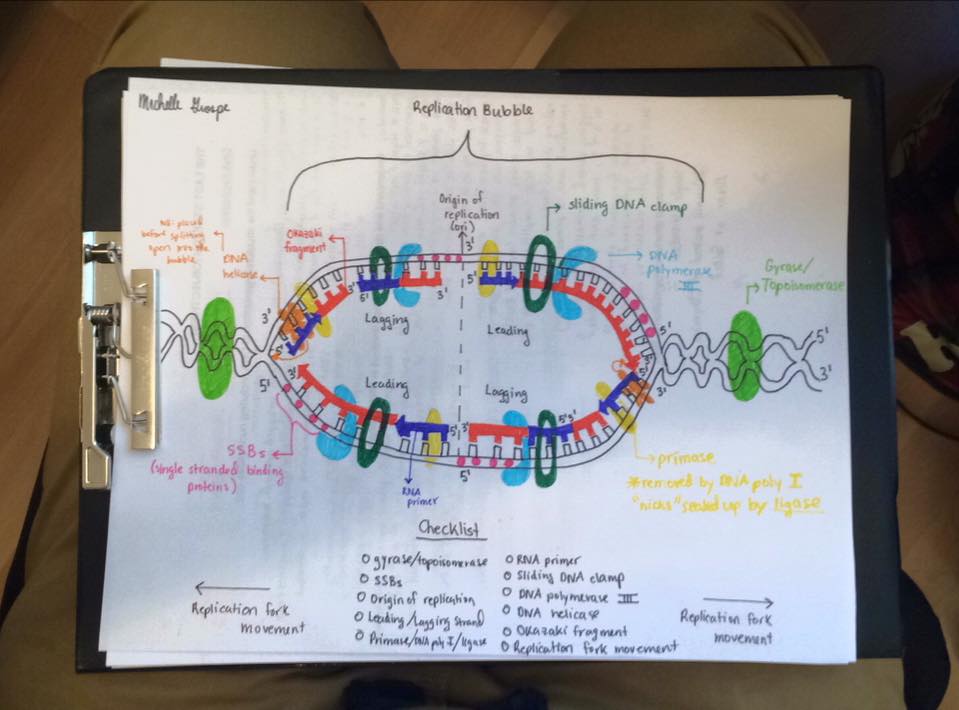 Michelle
Replication Bubble
Origin of
replication
(ori)
3'
sliding DNA clamp
NB: placed
before splitting
open into the
bubble
DNA
helicase
Okazaki
fragment
DNA
polymerase
III
Gyrase/
Topoisomerase
3'
5'
3'
5'
3'
5'
Lagging
Leading
5'
5'
3'
5'
3'
5'
3'
5'
3'
Leading
Lagging
5'
3'
5'
3'
5'
SSBs
(single stranded binding
proteins)
RNA
primer
primase
*removed by DNA poly I
"nicks" sealed up by ligase
Checklist
O gyrase/topoisomerase
O SSBs
O Origin of replication
O Leading/Lagging Strand
O Primase/DNA poly I/ligase
O RNA primer
O Sliding DNA clamp
O DNA polymerase III
O DNA helicase
O Okazaki fragment
O Replication fork movement
Replication fork
movement
Replication fork
movement